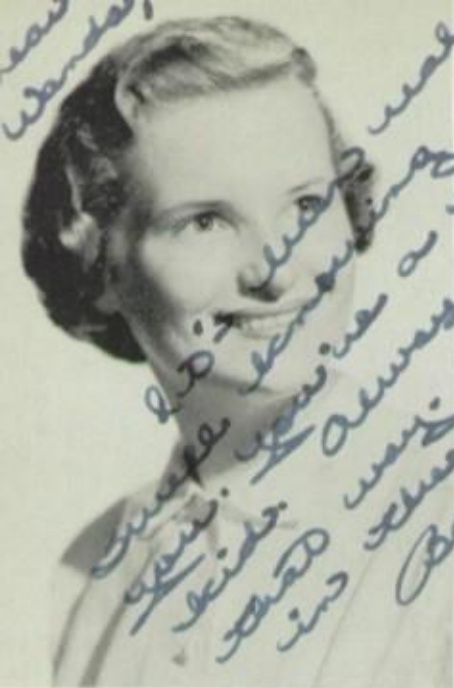 Dear
Wanda,
It's been real
swell knowing
you. You're a
kid. Always
that way.
in the